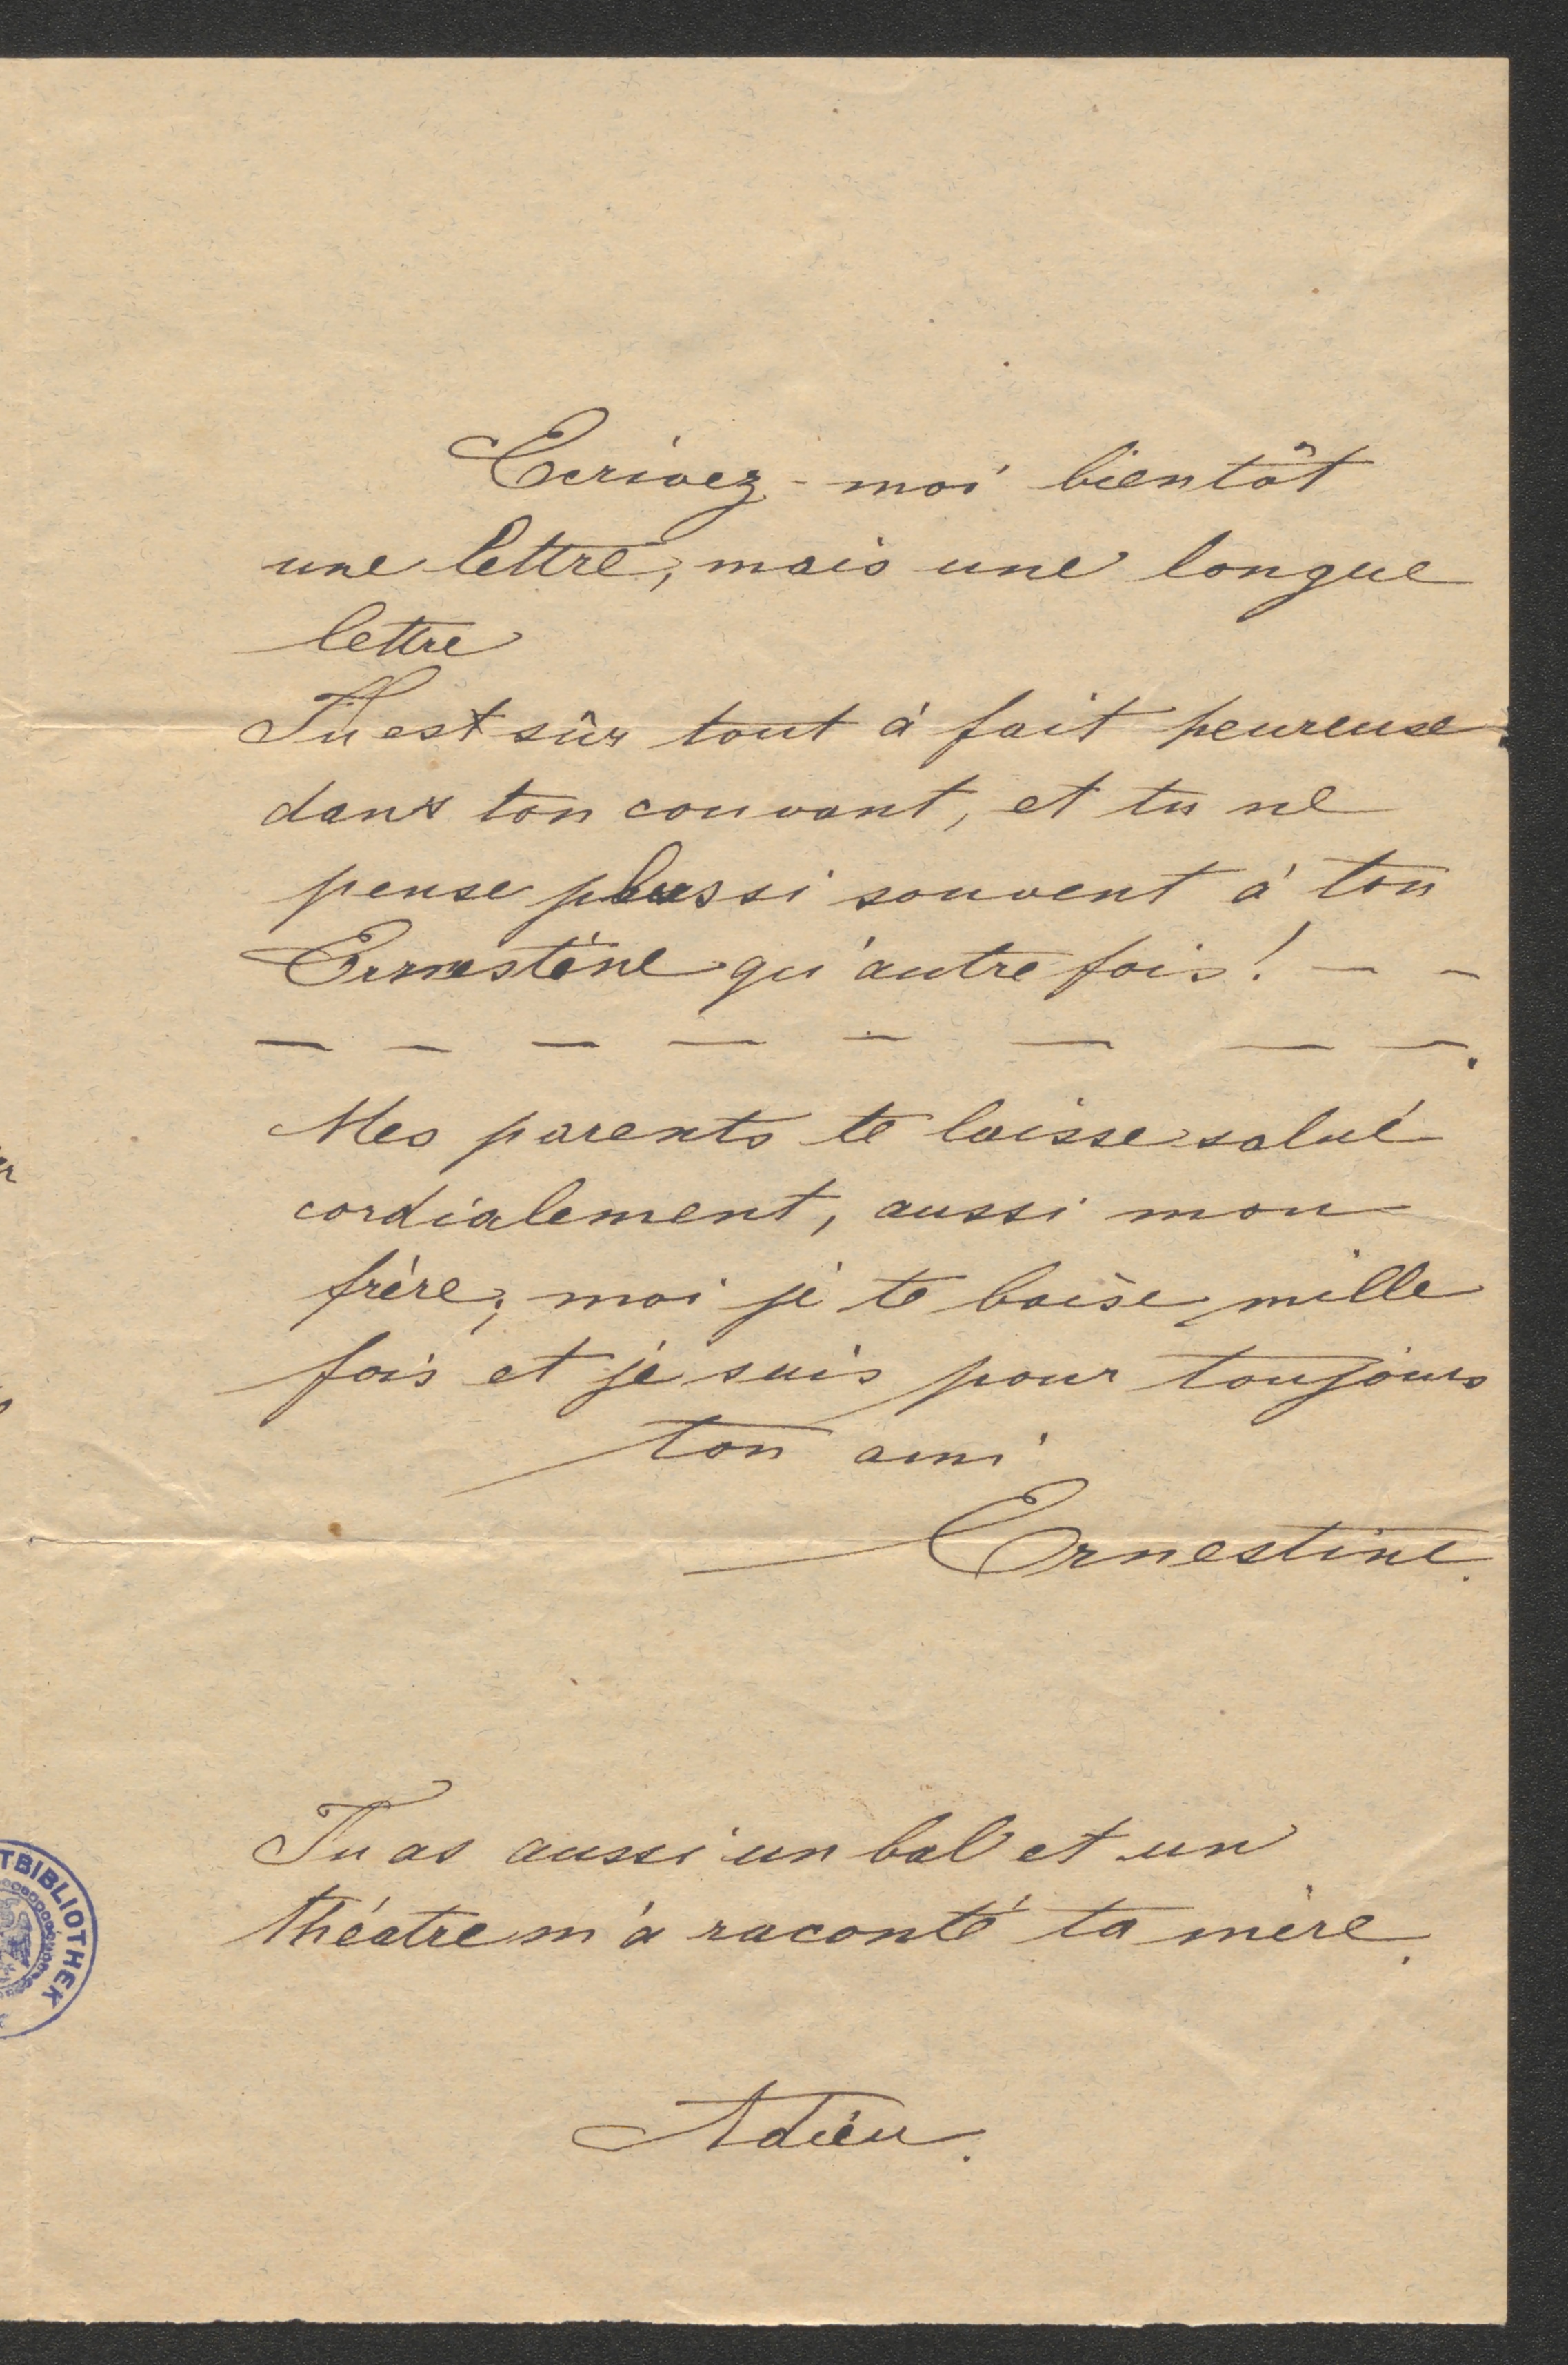 Ecrivez-moi bientôt
une lettre, mais une longue
lettre
Tu est sûr tout à fait heureuse
dans ton couvant, et tu ne
pense plus si souvent à ton
Ernestine qu'autre fois! — —
— — — — — — — —.
Mes parents te laisse salué
cordialement, aussi mon
frère, moi je te baise mille
fois et je suis pour toujours
ton ami
Ernestine.
Tu as aussi un bal et un
théatre m'a raconté ta mère.
Adieu.
TBIBLIOTHEK